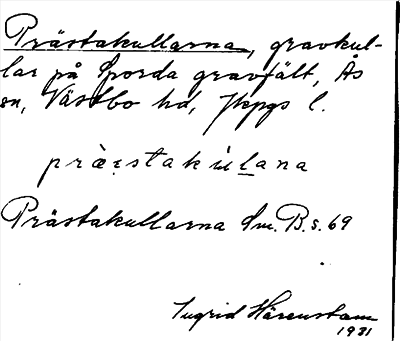 Prästakullarna, gravkul-
lar på Sporda gravfält, Ås
sn, Västbo hd, Jkpgs l.
præ̀stakúḷana
Prästakullarna Sm. B. s. 69
Ingrid Härenstam
1931